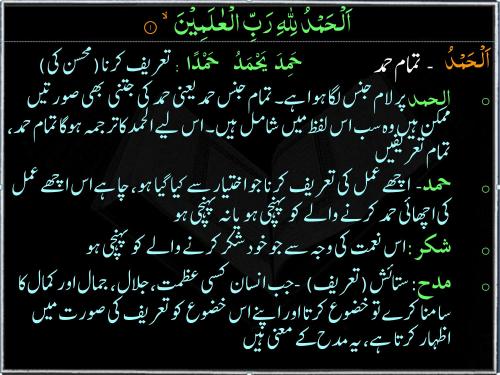 اَلْحَمْدُ لِلّٰهِ رَبِّ الْعٰلَمِیْنَ ۙ﴿۱﴾
اَلْحَمْدُ - تمام حمد حَمِدَ يَحْمَدُ حَمْدًا : تعریف کرنا (محسن کی)
الحمد پر لام جنس لگا ہوا ہے۔ تمام جنس حمد یعنی حمد کی جتنی بھی صورتیں
ممکن ہیں وہ سب اس لفظ میں شامل ہیں۔ اس لیے الحمد کا ترجمہ ہوگا تمام حمد،
تمام تعریفیں
حمد۔ اچھے عمل کی تعریف کرنا جو اختیار سے کیا گیا ہو، چاہے اس اچھے عمل
کی اچھائی حمد کرنے والے کو پہنچی ہو یا نہ پہنچی ہو
شکر: اس نعمت کی وجہ سے جو خود شکر کرنے والے کو پہنچی ہو
مدح: ستائش (تعریف) - جب انسان کسی عظمت، جلال، جمال اور کمال کا
سامنا کرے تو خضوع کرتا اور اپنے اس خضوع کو تعریف کی صورت میں
اظہار کرتا ہے، یہ مدح کے معنی ہیں